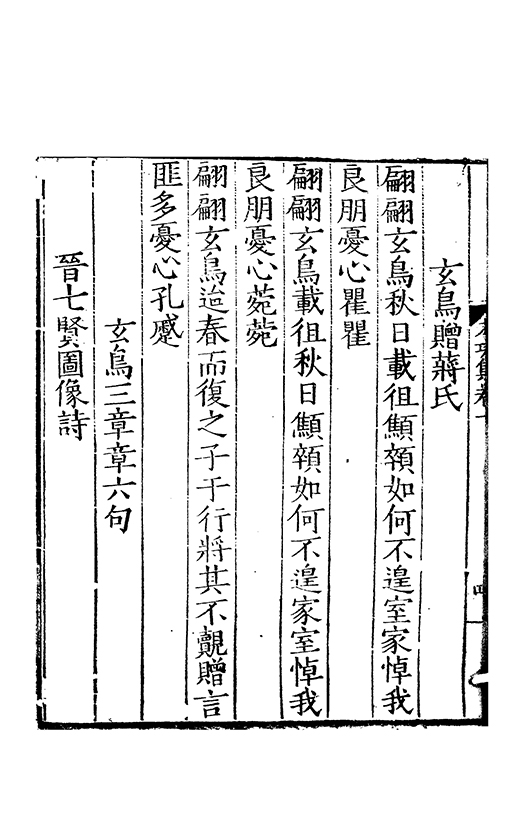 玄鳥贈蔣氏
翩翩玄鳥秋日載徂顦顇如何不遑室家悼我
良朋憂心瞿瞿
翩翩玄鳥載徂秋日顦顇如何不遑家室悼我
良朋憂心菀菀
翩翩玄鳥迨春而復之子于行將其不覿贈言
匪多憂心孔蹙
玄鳥三章章六句
晉七賢圖像詩